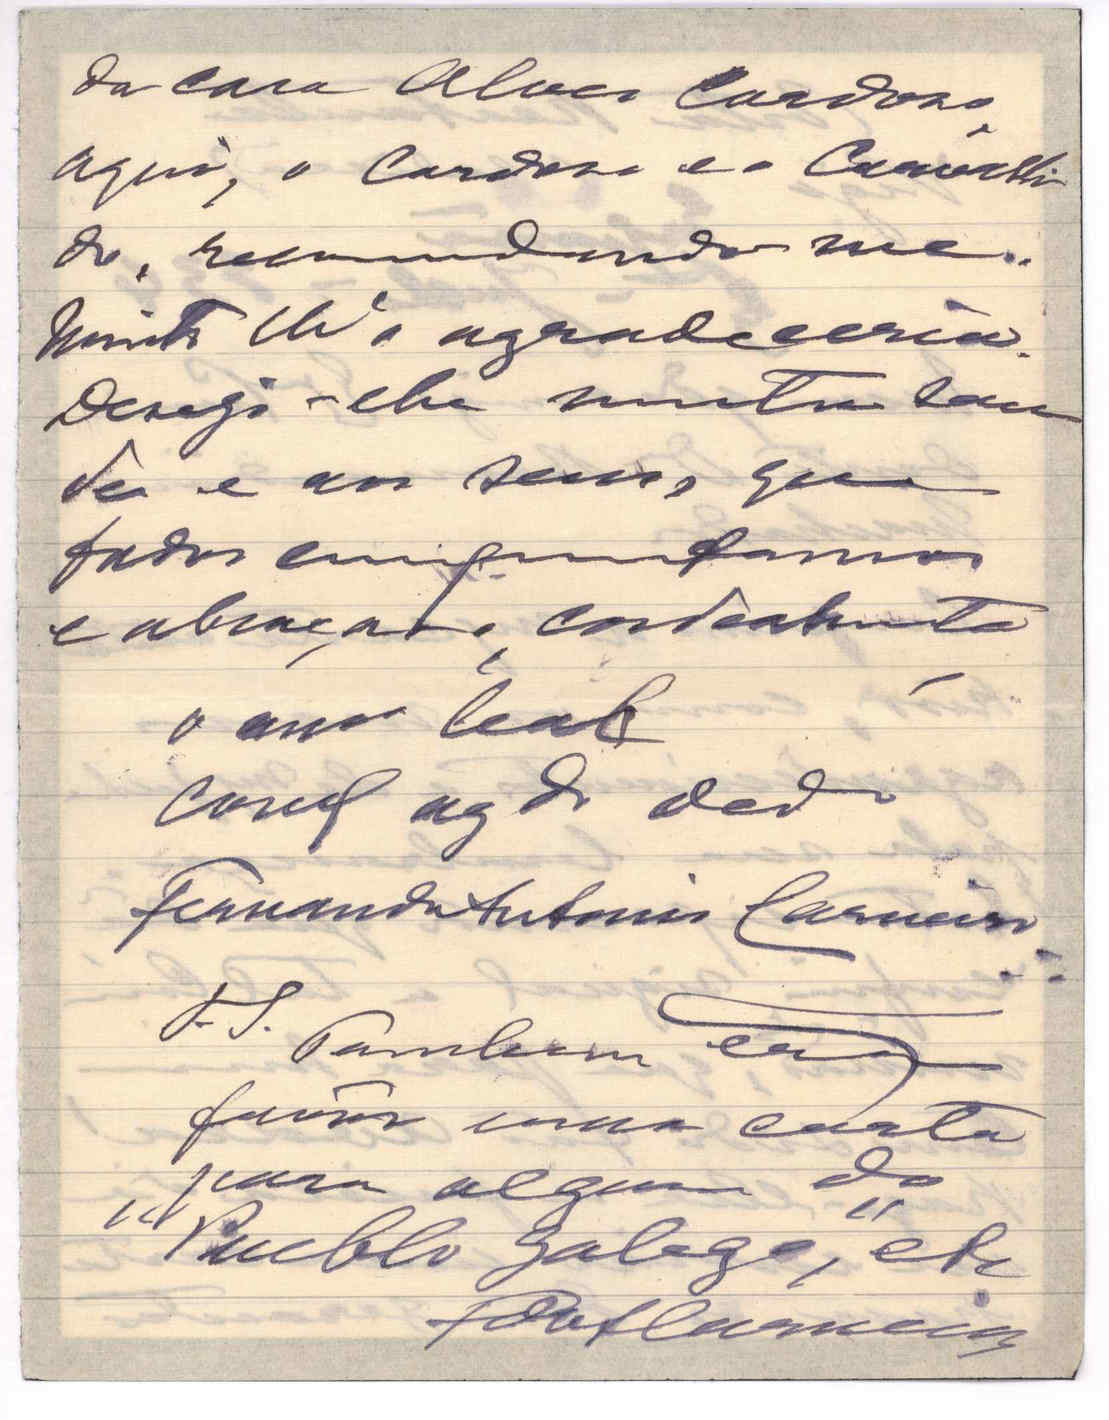 da casa Alves Cardoso,
aqui, o Cardoso e o Carvalhi
do, recomendando me..
Muito lh'o agradeceria.
Desejo-lhe muita sau
de e aos seus, que
todos cumprimentamos
e abraçamos, cordealmente
o am leal
agdo dedo
Fernando Antonio Carneiro
P.S.
Tambem
favor uma carta
para algum do
"Pueblo galego", etc
Carneiro